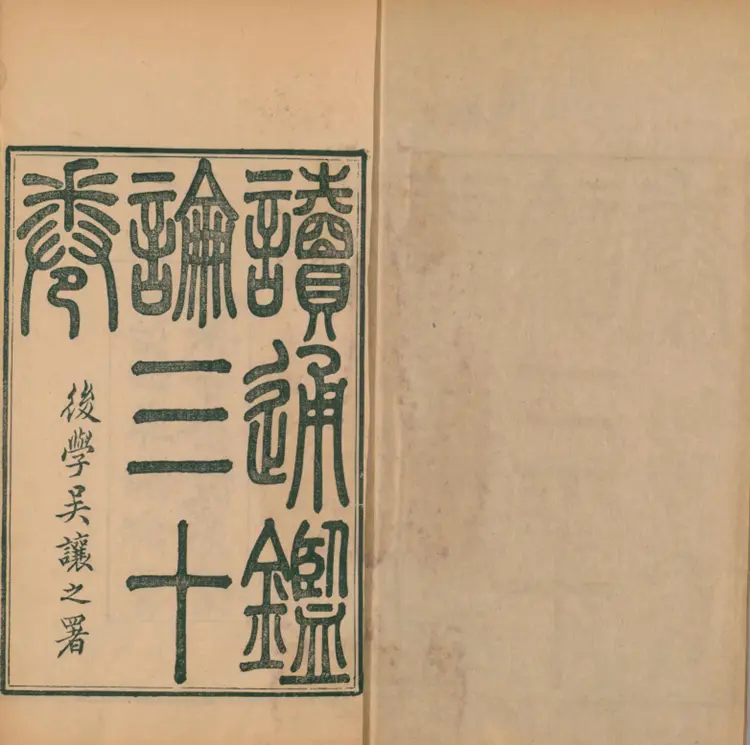 讀通鑑
論三十
卷
後學吳讓之署